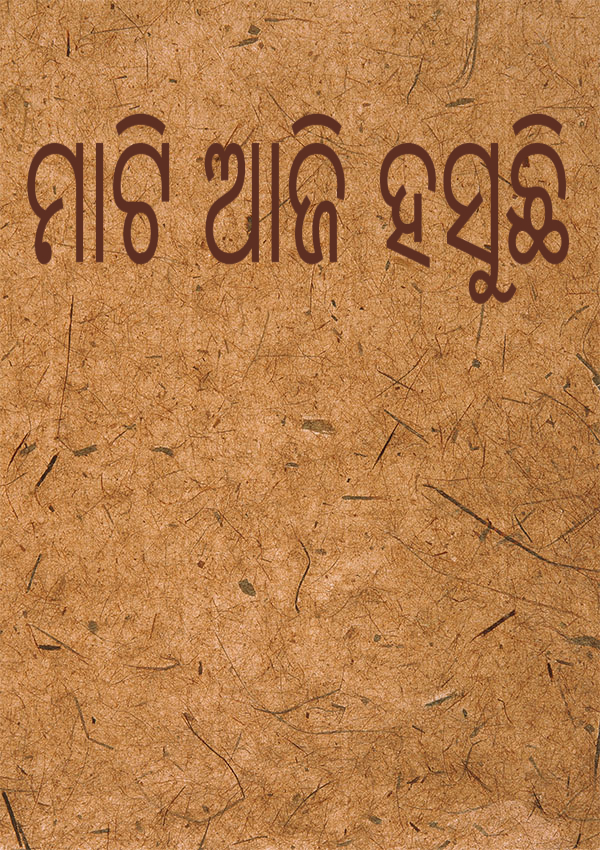 ମାଟି ଆଜି ହସୁଛି